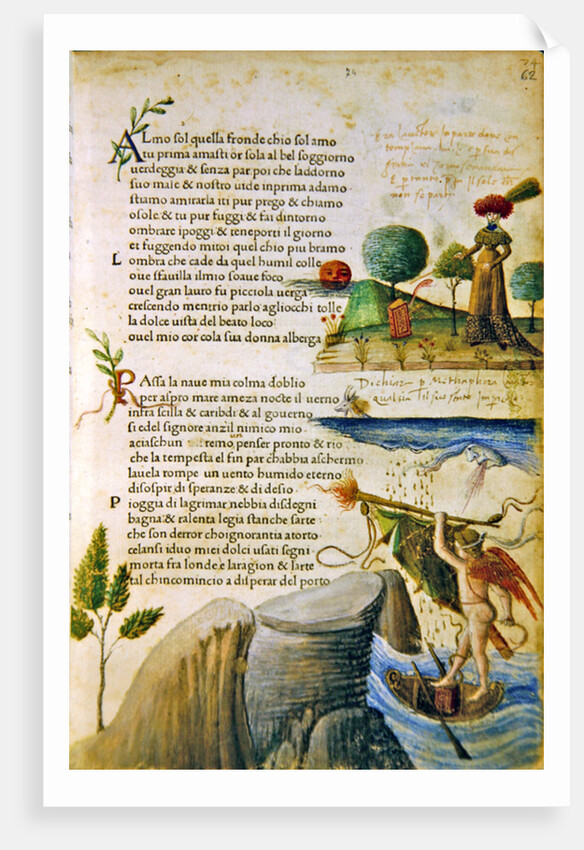 24
24
62
ALmo sol quella fronde chio sol amo
tu prima amasti or sola al bel soggiorno
uerdeggia & senza par poi che laddorno
suo male & nostro uide inprima adamo
stiamo amirarla iti pur prego & chiamo
osole & tu pur fuggi & fai dintorno
ombrare ipoggi & teneporti il giorno
et fuggendo mitoi quel chio piu bramo
Lombra che cade da quel humil colle
oue sfauilla ilmio soaue foco
ouel gran lauro fu picciola uerga
crescendo mentrio parlo agliocchi tolle
la dolce uista del beato loco
ouel mio cor cola sua donna alberga
PAssa la naue mia colma doblio
per aspro mare ameza nocte il uerno
infra scilla & caribdi & al gouerno
si edel signore anzil nimico mio
aciaschun remo un penser pronto & rio
che la tempesta el fin par chabbia aschermo
lauela rompe un uento humido eterno
disospir di speranze & di desio
Pioggia di lagrimar nebbia disdegni
bagna & ralenta legia stanche sarte
che son derror choignorantia atorto
celansi iduo miei dolci usati segni
morta fra londe e laragion & larte
tal chincomincio a disperar del porto
Dichiar p Methaphora